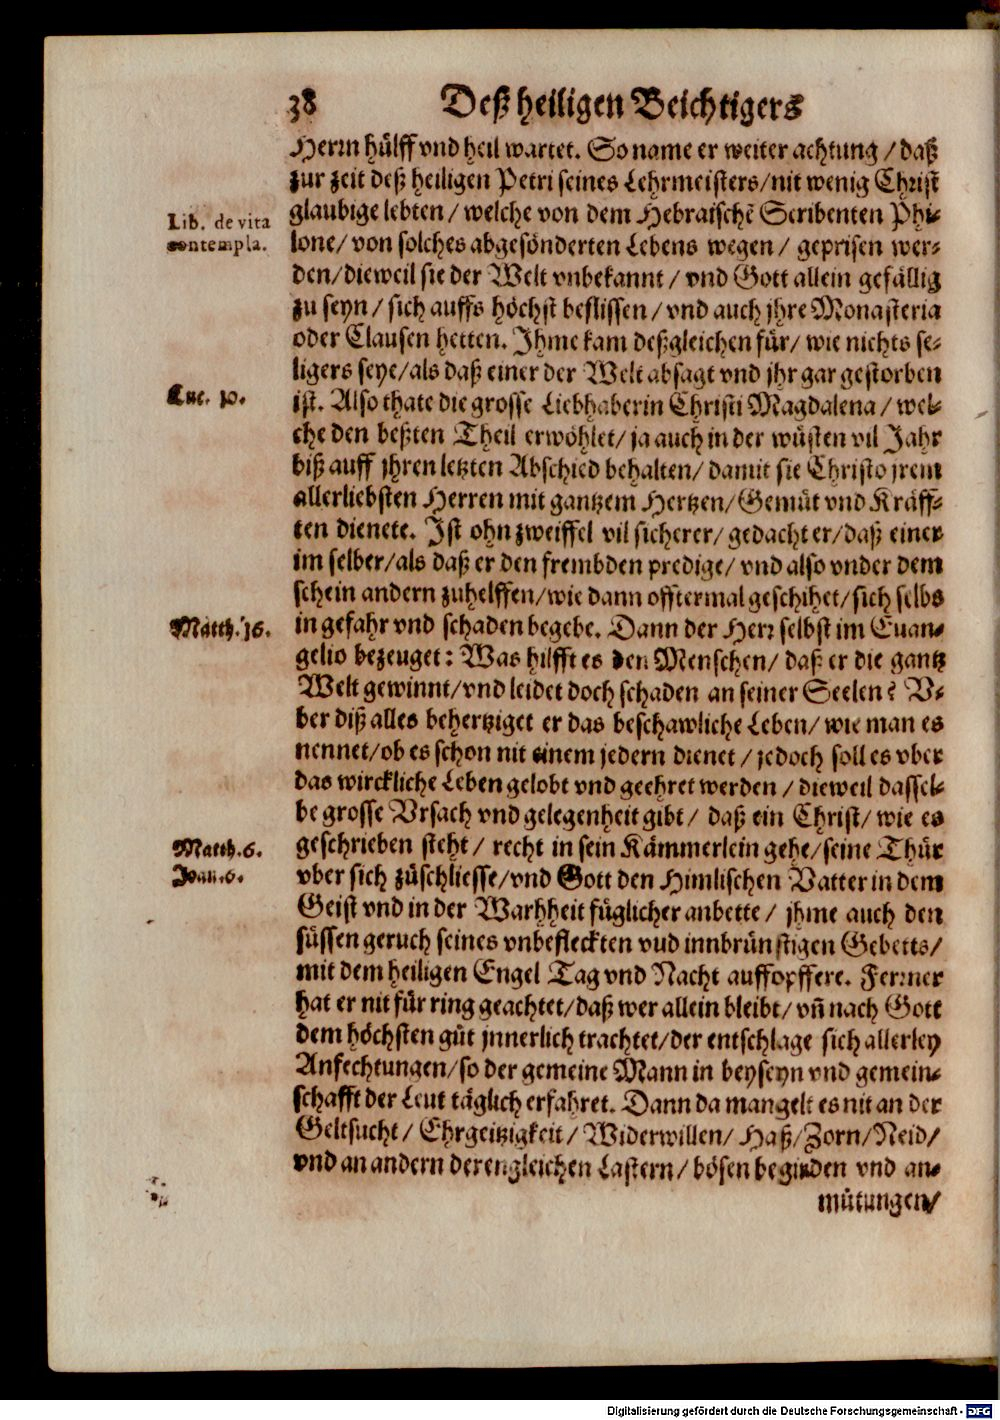 38 Deß heiligen Beichtigers
Herrn hülff vnd heil wartet. So name er weiter achtung / daß
zur zeit deß heiligen Petri seines Lehrmeisters/nit wenig Christ
glaubige lebten / welche von dem Hebraischẽ Scribenten Phi-
Lib. de vita
lone/ von solches abgesönderten Lebens wegen / geprisen wer-
contempla.
den/dieweil sie der Welt vnbekannt / vnd Gott allein gefällig
zu seyn / sich auffs höchst beflissen / vnd auch jhre Monasteria
oder Clausen hetten. Ihme kam deßgleichen für/ wie nichts se-
ligers seye/als daß einer der Welt absagt vnd jhr gar gestorben
Luc. 10.
ist. Also thate die grosse Liebhaberin Christi Magdalena / wel-
che den beßten Theil erwöhlet/ ja auch in der wüsten vil Jahr
biß auff jhren letzten Abschied behalten/ damit sie Christo jrem
allerliebsten Herren mit gantzem Hertzen/Gemüt vnd Kräff-
ten dienete. Ist ohn zweiffel vil sicherer/ gedacht er/daß einer
im selber/als daß er den frembden predige/ vnd also vnder dem
schein andern zuhelffen/wie dann offtermal geschihet/sich selbs
Matth. 16.
in gefahr vnd schaden begebe. Dann der Herr selbst im Euan-
gelio bezeuget: Was hilfft es den Menschen/ daß er die gantz
Welt gewinnt/vnd leidet doch schaden an seiner Seelen? V-
ber diß alles behertziget er das beschawliche Leben/ wie man es
nennet/ob es schon nit einem jedern dienet / jedoch soll es vber
das wirckliche Leben gelobt vnd geehret werden / dieweil dassel-
be grosse Vrsach vnd gelegenheit gibt / daß ein Christ/ wie es
Matth. 6.
geschrieben steht / recht in sein Kämmerlein gehe/seine Thür
Ioan. 6.
vber sich züschliesse/vnd Gott den Himlischen Vatter in dem
Geist vnd in der Warhheit füglicher anbette / jhme auch den
süssen geruch seines vnbefleckten vud innbrünstigen Gebetts/
mit dem heiligen Engel Tag vnd Nacht auffopffere. Ferrner
hat er nit für ring geachtet/daß wer allein bleibt/ vñ nach Gott
dem höchsten güt jnnerlich trachtet/der entschlage sich allerley
Anfechtungen/so der gemeine Mann in beyseyn vnd gemein-
schafft der Leut täglich erfahret. Dann da mangelt es nit an der
Geltsucht / Ehrgeitzigkeit / Widerwillen/ Haß/Zorn/Neid/
vnd an andern derengleichen Lastern/ bösen begirden vnd an-
mütungen/
Digitalisierung gefördert durch die Deutsche Forschungsgemeinschaft - DFG